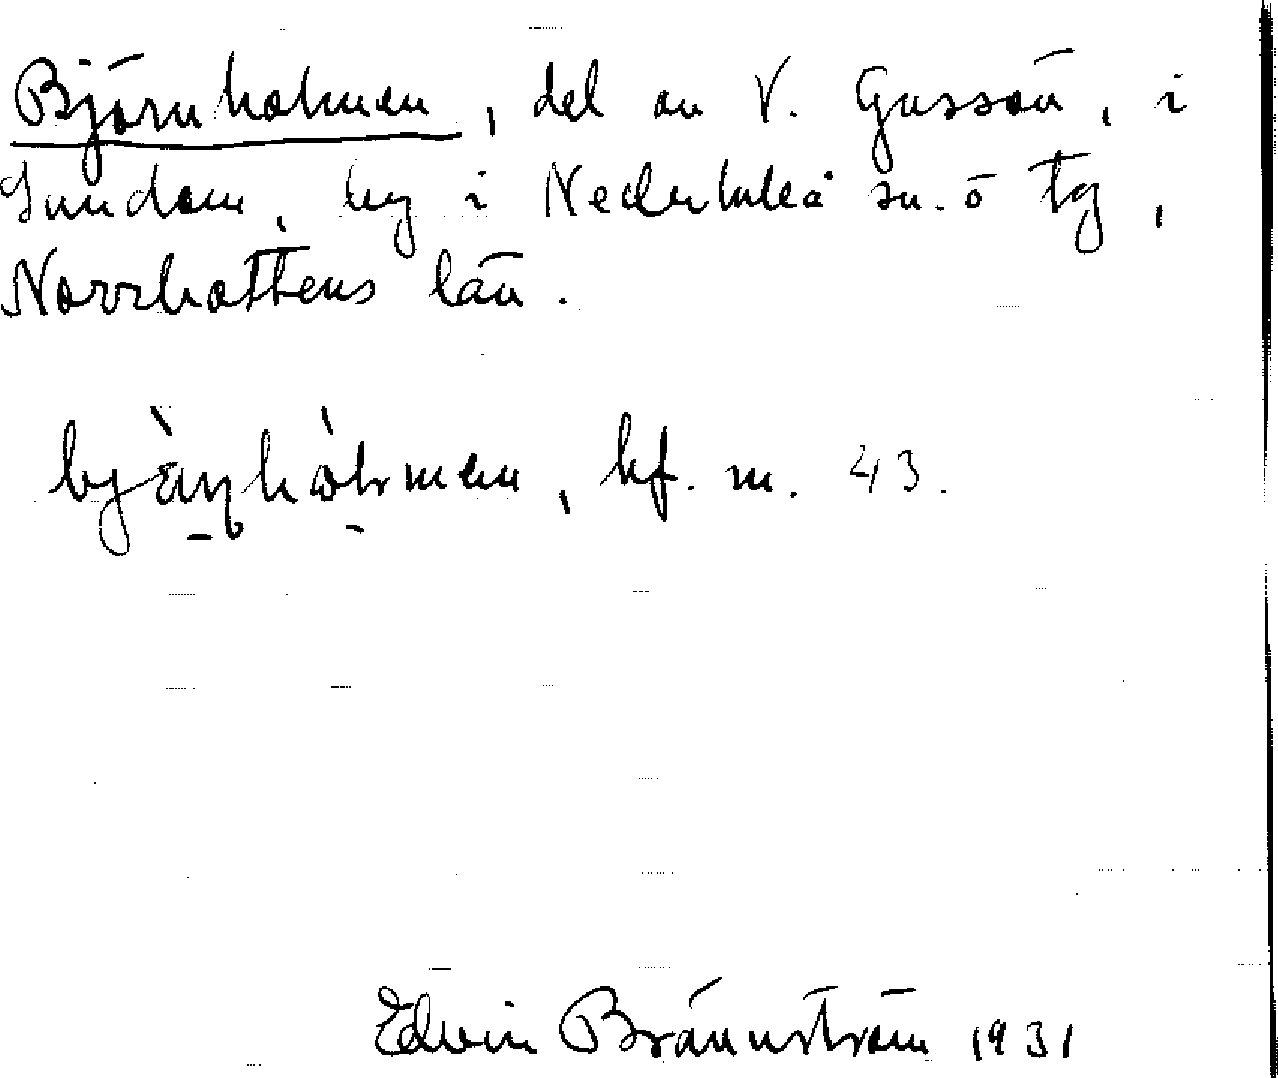 Björnholmen, del av V. Gussön, i
Sundom, by i Nederluleå sn. o tg,
Norrbottens län.
hf. m. 43.
Edvin Brännström 1931